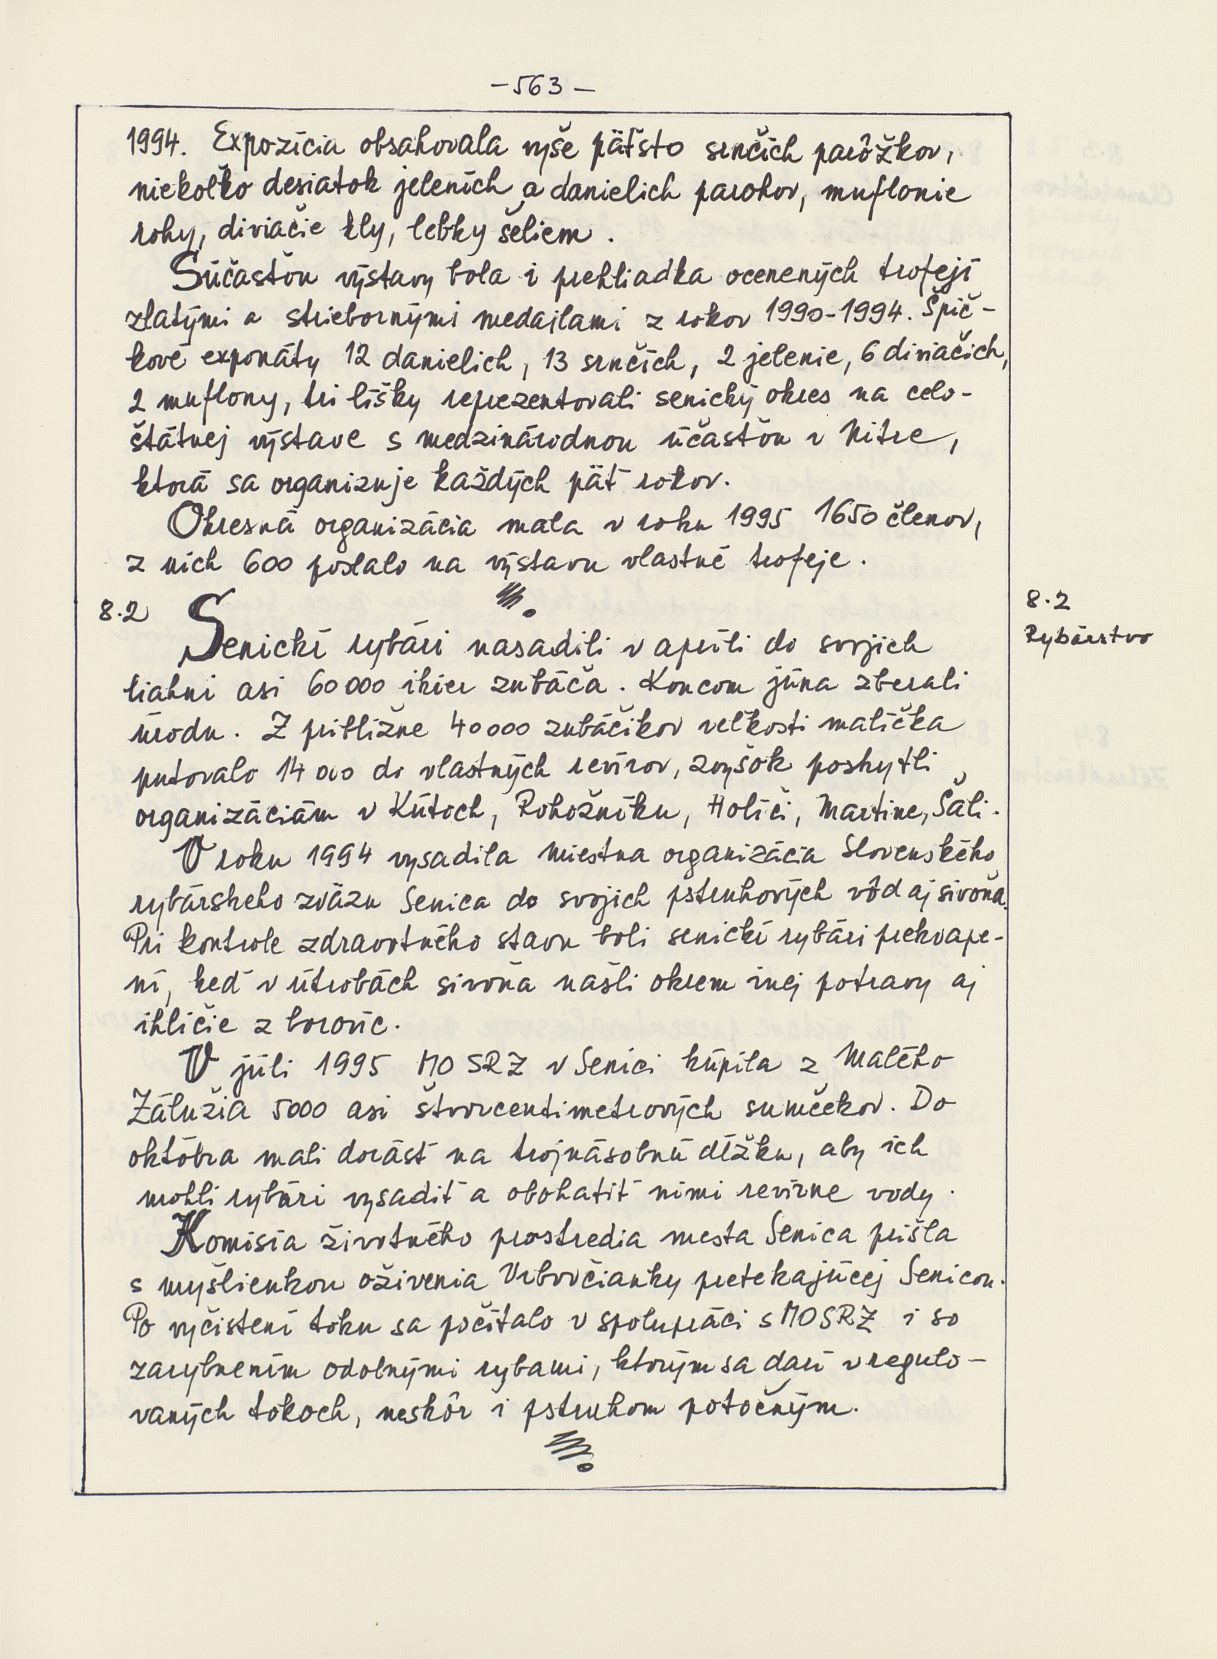 -563-
1994. Expozícia obsahovala vyše päťsto srnčích parôžkov,
niekoľko desiatok jeleních a danielich parohov, muflonie
rohy, diviačie kly, lebky šeliem.
Súčasťou výstavy bola i prehliadka ocenených trofejí
zlatými a striebornými medajlami z rokov 1990-1994. Špič-
kové exponáty 12 danielich, 13 srnčích, 2 jelenie, 6 diviačich,
2 muflony, tri líšky reprezentovali senický okres na celo-
štátnej výstave s medzinárodnou účasťou v Nitre,
ktorá sa organizuje každých päť rokov.
Okresná organizácia mala v roku 1995 1650 členov,
z nich 600 poslalo na výstavu vlastné trofeje.
8.2 Senickí rybári nasadili v apríli do svojich
liahní asi 60 000 ikier zubáča. Koncom júna zberali
úrodu. Z približne 40000 zubáčikov veľkosti malíčka
putovalo 14 000 do vlastných revírov, zvyšok poskytli
organizáciám v Kútoch, Rohožníku, Holíči, Martine, Šali.
V roku 1994 vysadila Miestna organizácia Slovenského
rybárskeho zväzu Senica do svojich pstruhových vôd aj sivoňa.
Pri kontrole zdravotného stavu boli senickí rybári prekvape-
ní, keď v útrobách sivoňa našli okrem inej potravy aj
ihličie z borovíc.
V júli 1995 MO SRZ v Senici kúpila z Malého
Zálužia 5000 asi štvorcentimetrových sumčekov. Do
októbra mali dorásť na trojnásobnú dĺžku, aby ich
mohli rybári vysadiť a obohatiť nimi revírne vody.
Komisia životného prostredia mesta Senica prišla
s myšlienkou oživenia Vrbovčianky pretekajúcej Senicou.
Po vyčistení toku sa počítalo v spolupráci s MOSRZ i so
zarybnením odolnými rybami, ktorým sa darí v regulo-
vaných tokoch, neskôr i pstruhom potočným.
8.2
Rybárstvo